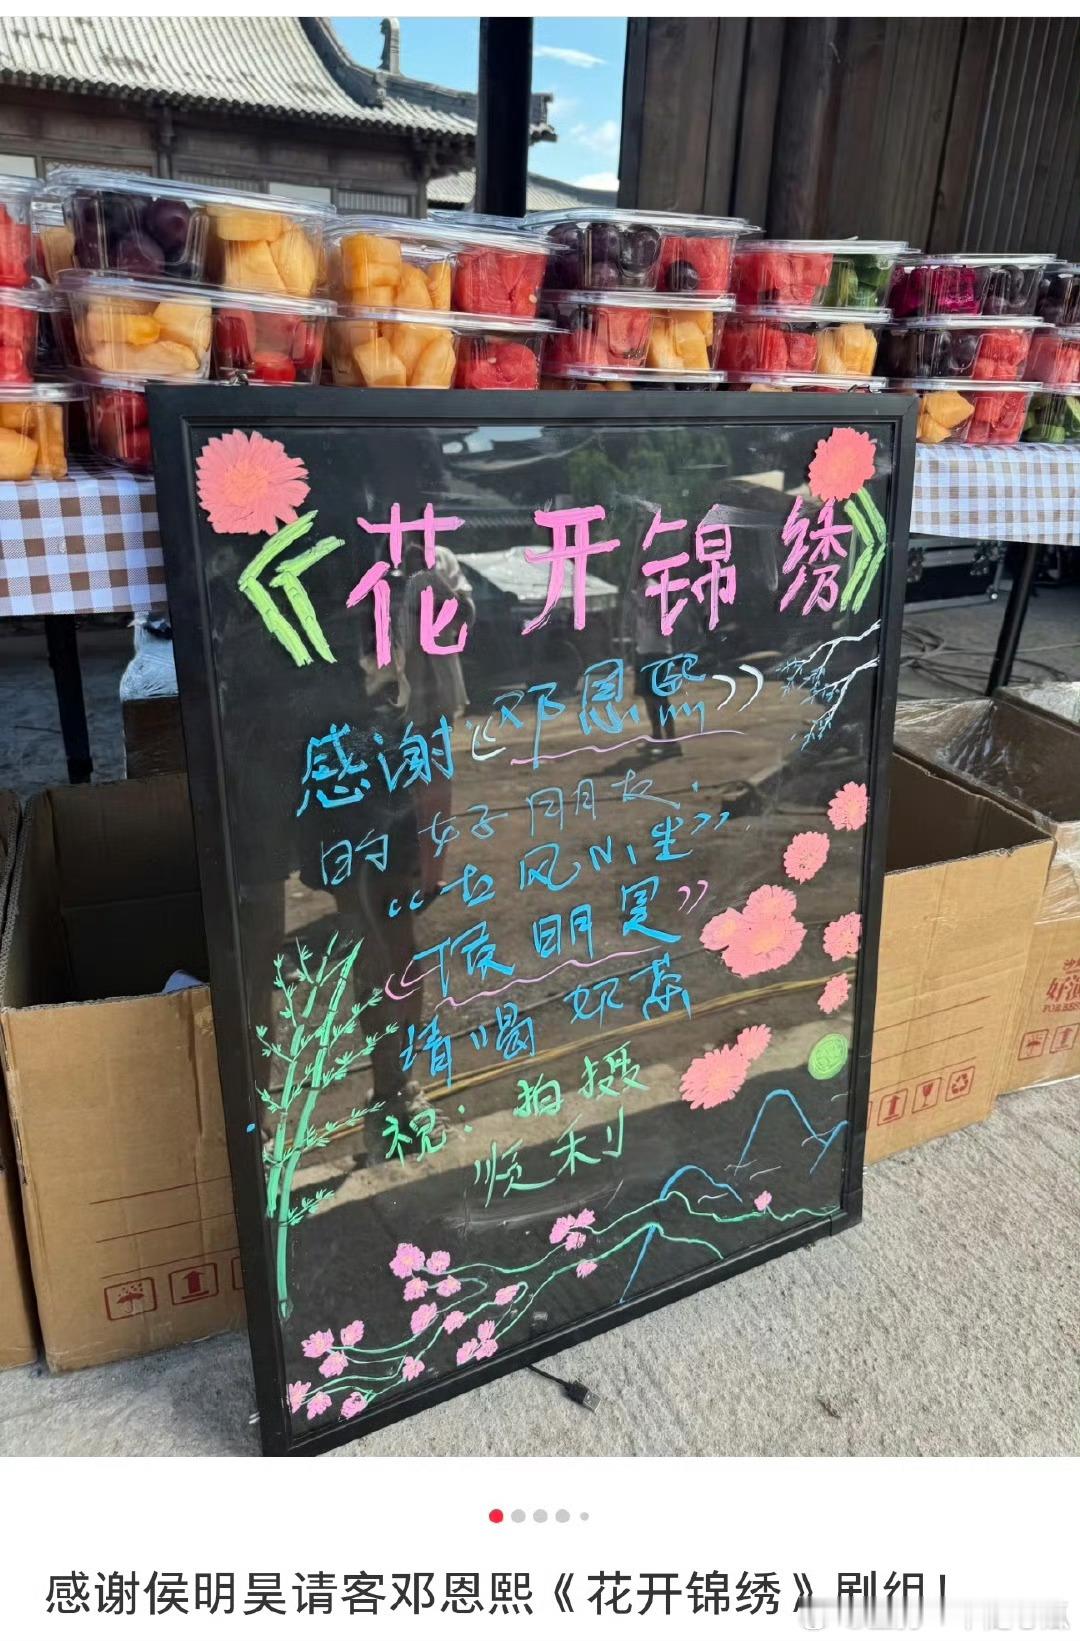 《花开锦绣》
感谢《邓恩熙》
的好同朋友.
“古风小生”
《侯明昊》
请喝奶茶
祝:拍摄
顺利
好运
感谢侯明昊请客邓恩熙《花开锦绣》剧组!